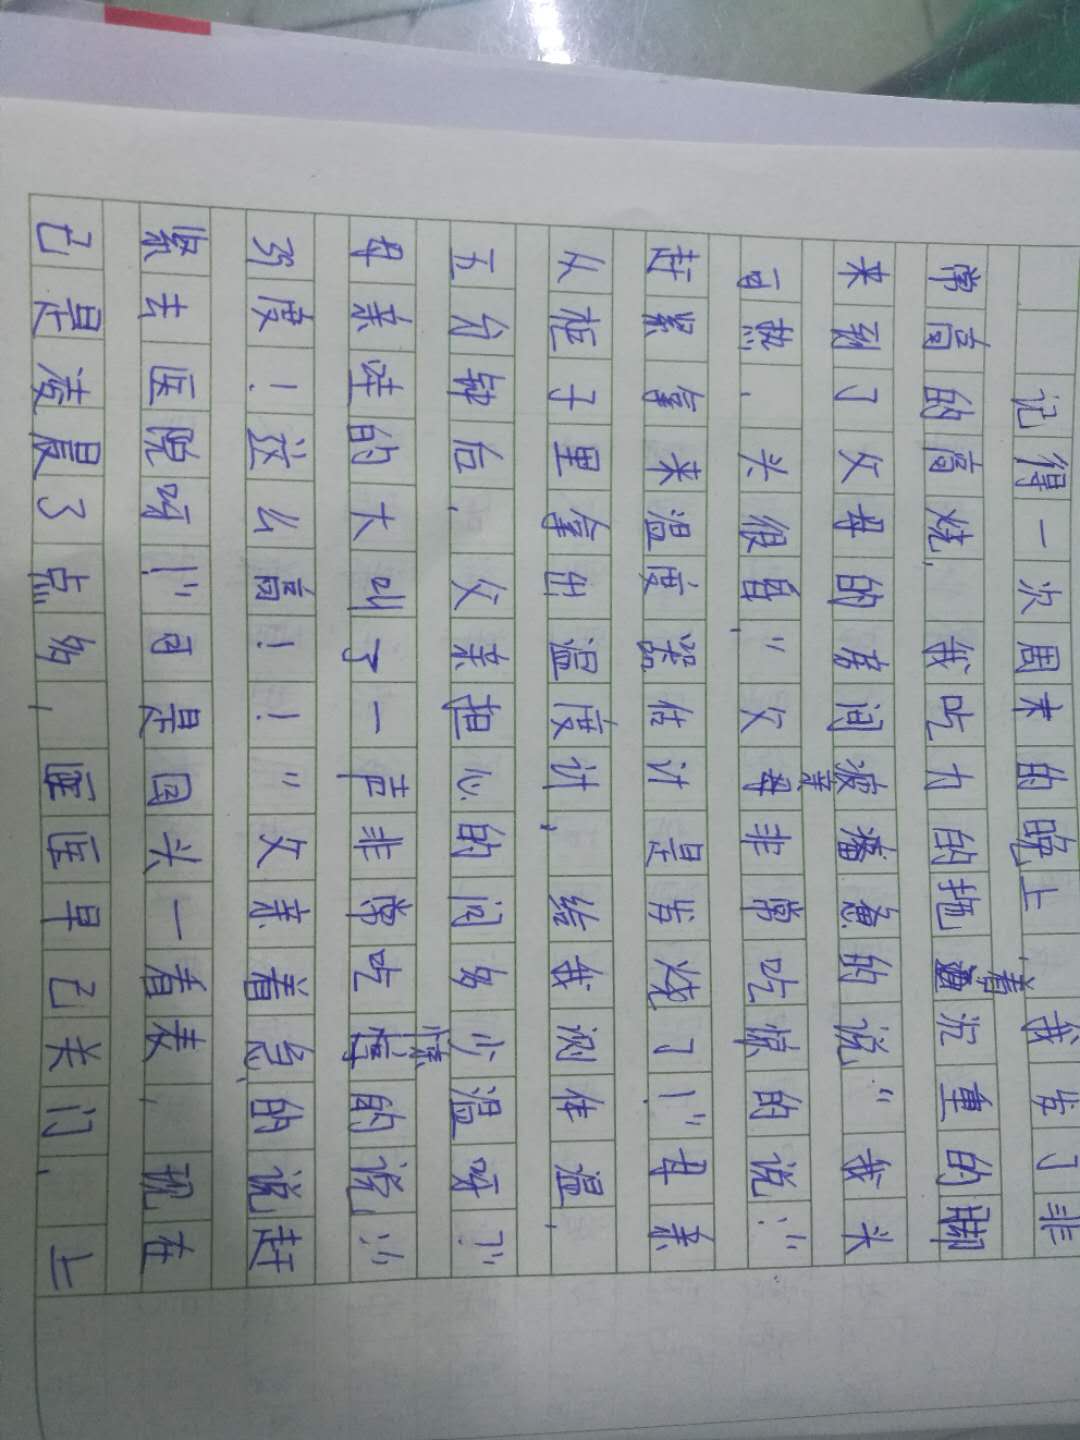 记得一次周末的晚上，我发了非
常高的高烧，我吃力的拖着沉重的脚
来到了父母的房间疲惫的说“我头
可热，头很自，”父母亲非常吃惊的说：“
赶紧拿来温度器估计是发烧了！”母亲
从柜子里拿出温度计，给我测体温，
五分钟后，父亲担心的问多少温呀？”
母亲哇的大叫了一声非常吃惊的说：“
39度！这么高！！”父亲着急的说赶
紧去医院呀！”可是回头一看表，现在
已是凌晨3点多，医医早已关门，上